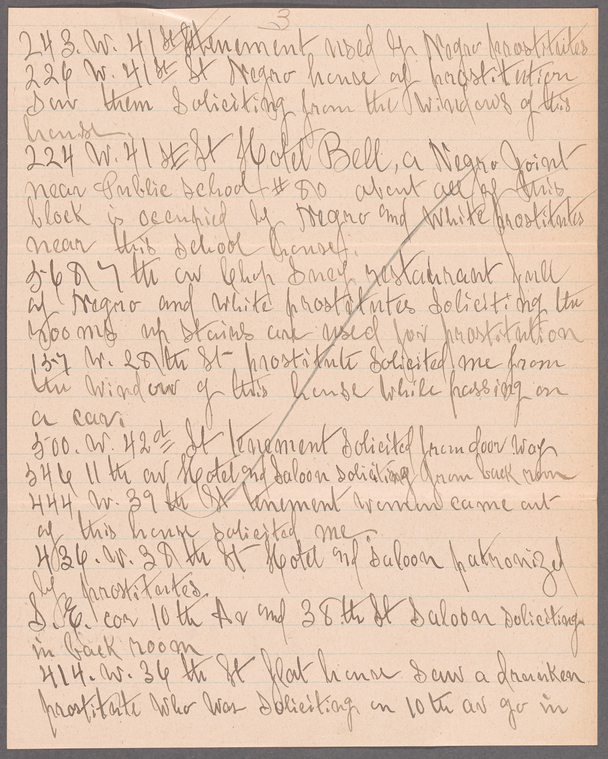 3
243. W. 41st St tenement used by Negro prostitutes
226 W. 41st St Negro house of prostitution
Saw them soliciting from the windows of this
house.
224 W. 41st St Hotel Bell, a Negro Joint
near Public School # 80 about all of this
block is occupied by Negro and White prostitutes
near this school house.
568 7th av Chop Suey restaurant full
of Negro and white prostitutes soliciting the
rooms up stairs are used for prostitution
157 W. 28th St prostitute solicited me from
the window of this house while passing on
a car.
500. W. 42d St tenement solicited from door way
546 11th av Hotel and Saloon soliciting from back room
444 W. 39th St tenement woman came out
of this house solicited me.
436. W. 38th St Hotel and Saloon patronized
by prostitutes.
S. E. cor 10th Av and 38th St Saloon soliciting
in back room
414. W. 36th St flat house Saw a drunken
prostitute who was soliciting on 10th av go in